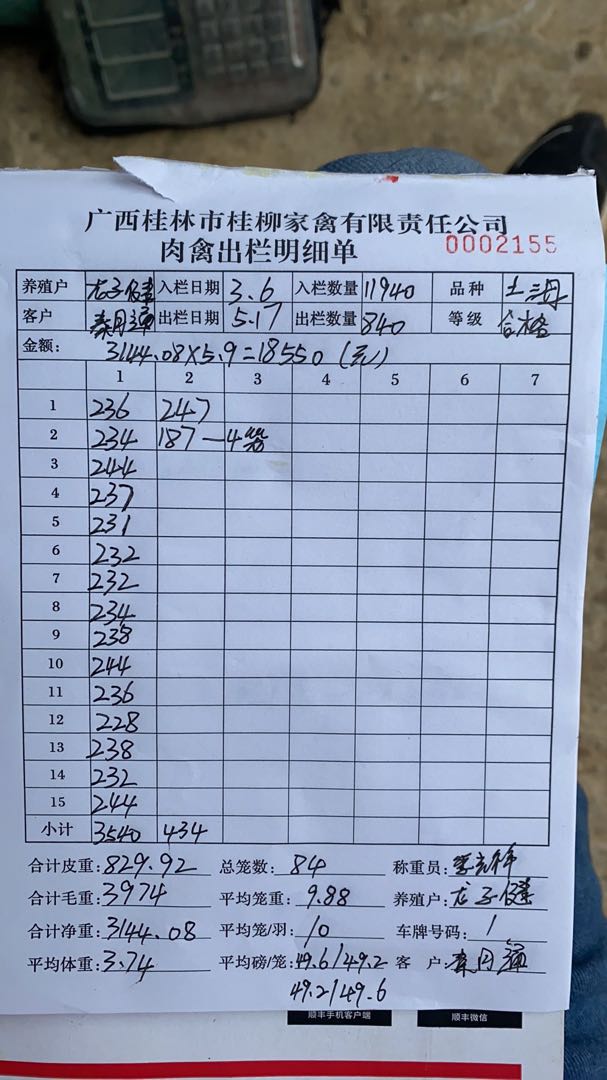 广西桂林市桂柳家禽有限责任公司
肉禽出栏明细单 0002155
养殖户 龙子健 入栏日期 3.6 入栏数量 11940 品种
客户 出栏日期 5.17 出栏数量 840 等级 合格
金额: 3144.08×5.9=18550 (元)
1 2 3 4 5 6 7
1 236 247
2 234 187—4笼
3 244
4 237
5 231
6 232
7 232
8 234
9 238
10 244
11 236
12 228
13 238
14 232
15 244
小计 3540 434
合计皮重: 829.92 总笼数: 84 称重员:
合计毛重: 3974 平均笼重: 9.88 养殖户: 龙子健
合计净重: 3144.08 平均笼/羽: 10 车牌号码: 1
平均体重: 3.74 平均磅/笼: 49.6/49.2 客户:
49.2/49.6
顺丰手机客户端 顺丰微信